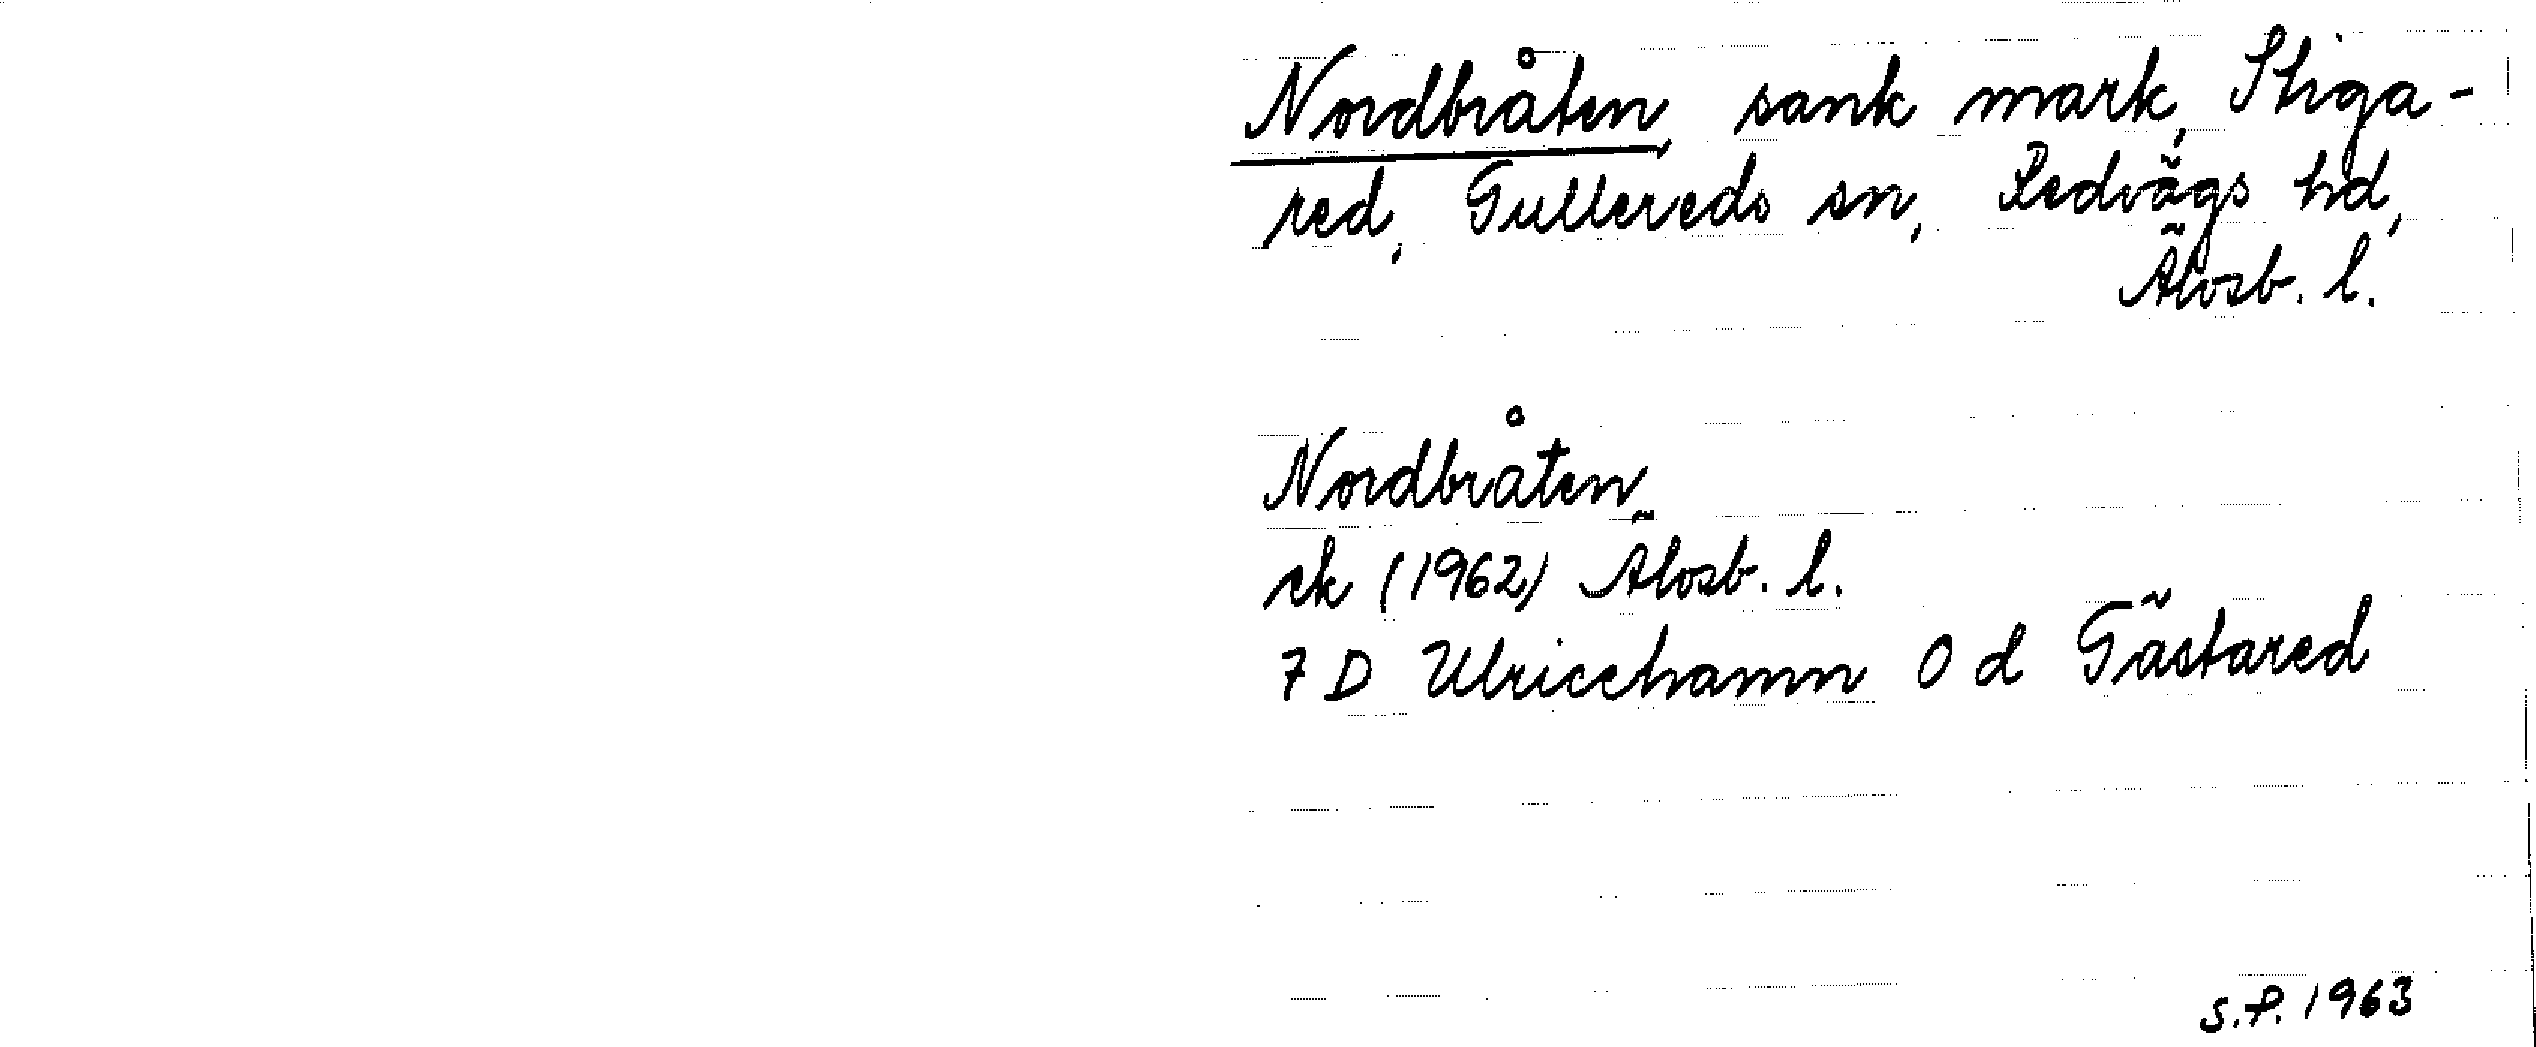 Nordbråten, sank mark, Stiga-
red, Gullereds sn, Redvägs hd,
Älvsb. l.
Nordbråten
ek (1962) Älvsb. l.
7 D Ulricehamn O d Gästared
S.P. 1963